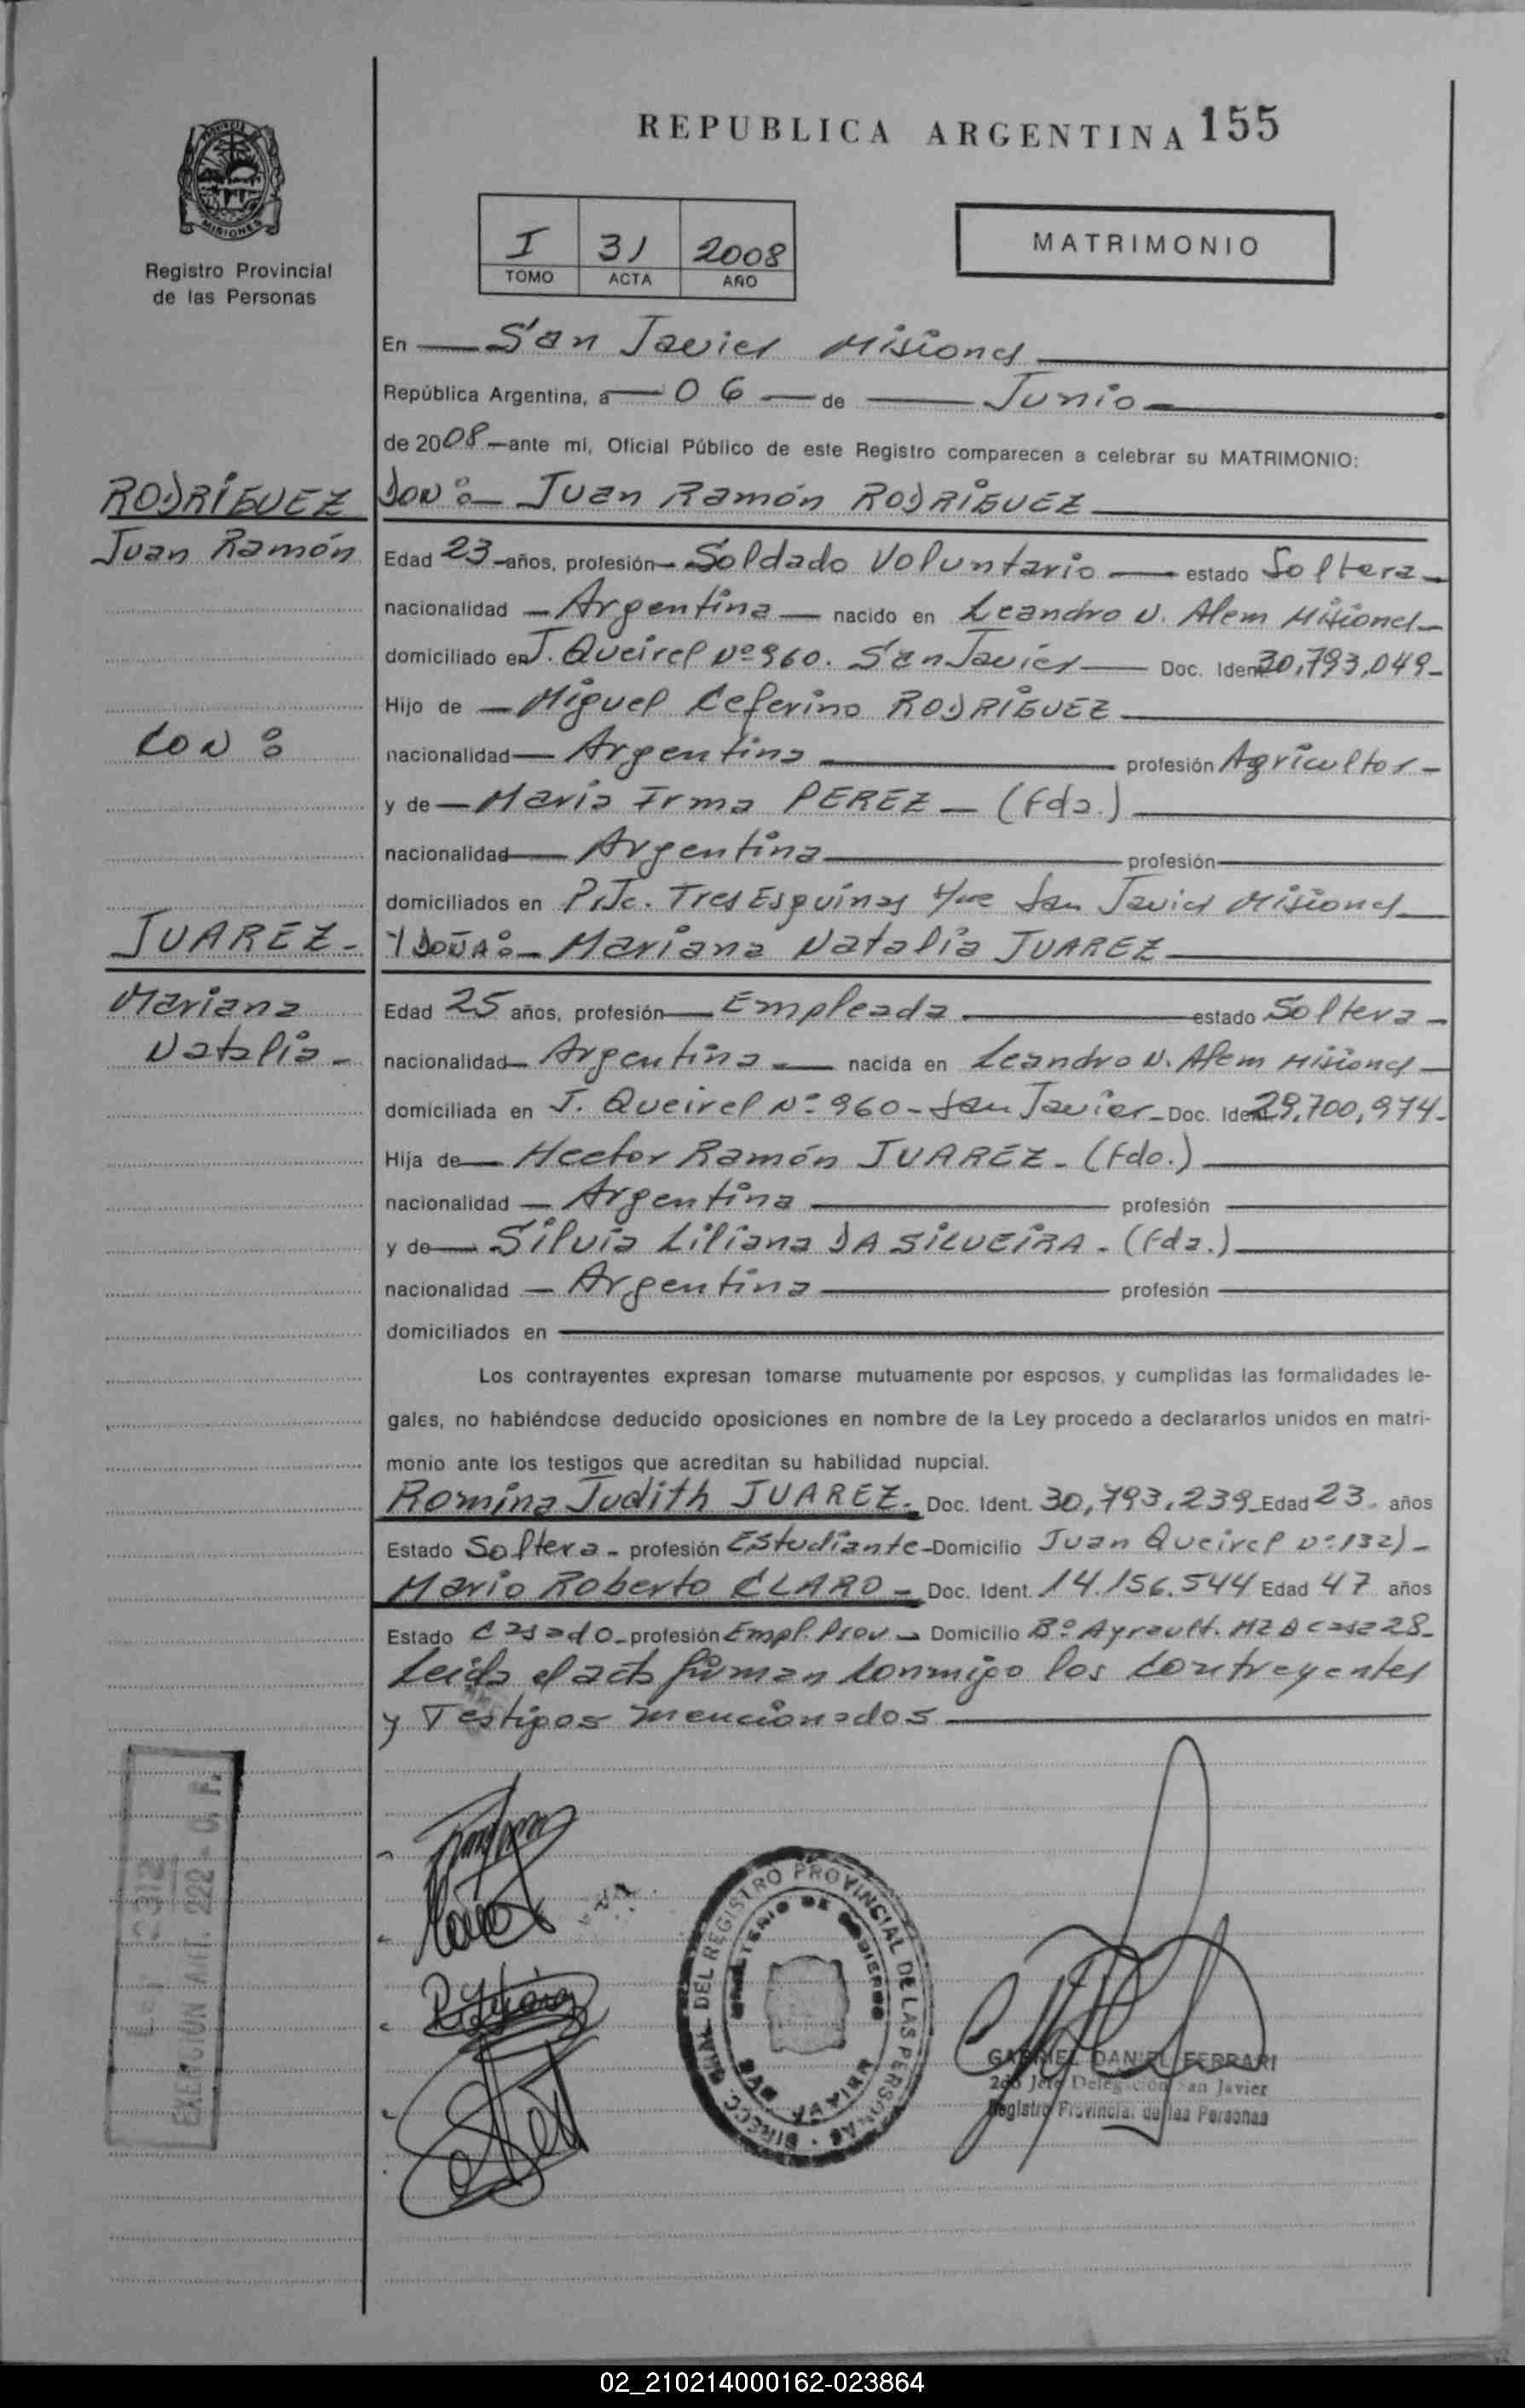 REPUBLICA ARGENTINA 155
MISIONES
Registro Provincial
de las Personas
I 31 2008
TOMO ACTA AÑO
MATRIMONIO
En San Javier Misiones
República Argentina, a 06 de Junio
de 2008 ante mí, Oficial Público de este Registro comparecen a celebrar su MATRIMONIO:
RODRIGUEZ
Juan Ramón
CON:
JUAREZ-
Mariana
Natalia-
DON:- Juan Ramón RODRIGUEZ
Edad 23 años, profesión Soldado Voluntario estado Soltera
nacionalidad Argentina nacido en Leandro N. Alem Misiones
domiciliado en J. Queirel Nº 960. San Javier Doc. Ident 30,793,049-
Hijo de Miguel Ceferino RODRIGUEZ
nacionalidad Argentina profesión Agricultor-
y de Maria Irma PEREZ - (Fda.)
nacionalidad Argentina profesión
domiciliados en Tres Esquinas San Javier Misiones
Y DOÑA:- Mariana Natalia JUAREZ
Edad 25 años, profesión Empleada estado Soltera-
nacionalidad Argentina nacida en Leandro N. Alem Misiones
domiciliada en J. Queirel Nº 960- San Javier- Doc. Ident 29,700,974-
Hija de Hector Ramón JUAREZ- (Fdo.)
nacionalidad Argentina profesión
y de Silvia Liliana DA SILVEIRA. (Fda.)
nacionalidad Argentina profesión
domiciliados en
Los contrayentes expresan tomarse mutuamente por esposos, y cumplidas las formalidades le-
gales, no habiéndose deducido oposiciones en nombre de la Ley procedo a declararlos unidos en matri-
monio ante los testigos que acreditan su habilidad nupcial.
Romina Judith JUAREZ- Doc. Ident. 30,793,239 Edad 23 años
Estado Soltera- profesión Estudiante Domicilio Juan Queirel
Mario Roberto CLARO- Doc. Ident. 14.156.544 Edad 47 años
Estado Casado- profesión Empl. Prov- Domicilio Bº Ayrault. casa 28-
Leida el acta firman conmigo los contrayentes
y Testigos mencionados
EXENCION ART. 222
DIRECC. GRAL. DEL REGISTRO PROVINCIAL DE LAS PERSONAS
MINISTERIO DE GOBIERNO
JAVIER
GABRIEL DANIEL FERRARI
2do Jefe Delegación San Javier
Registro Provincial de las Personas
02_210214000162-023864